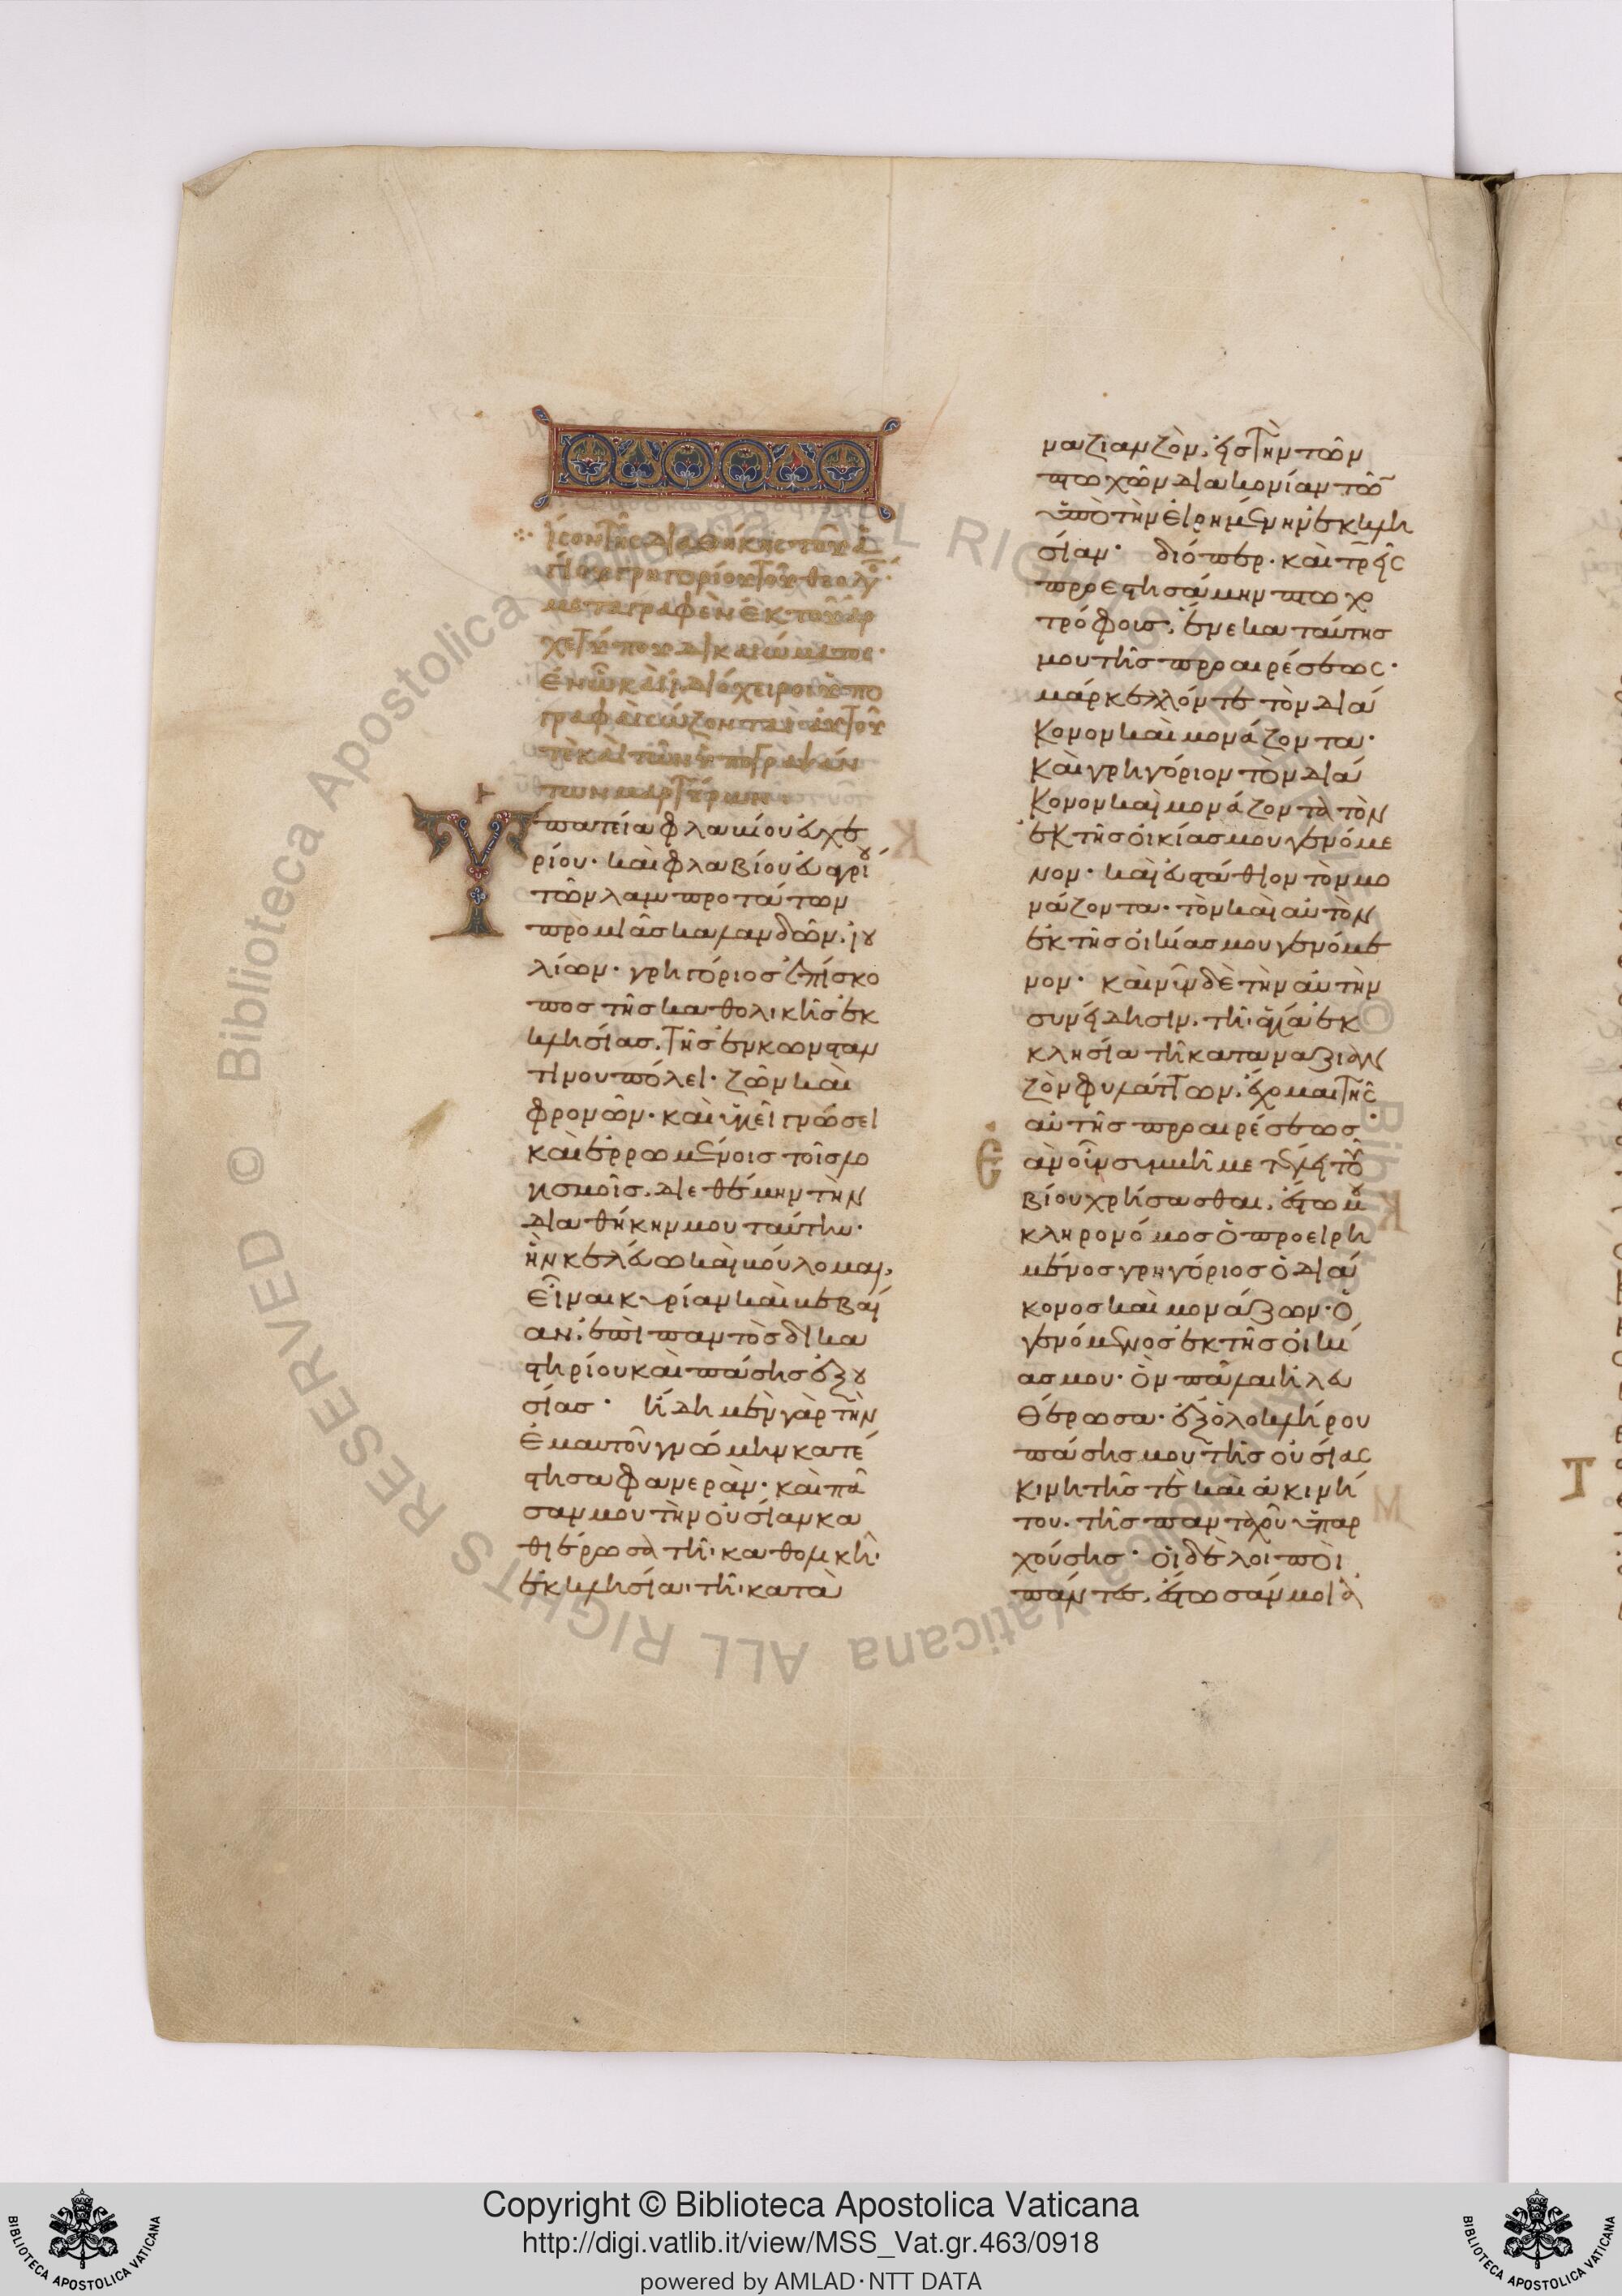 Ἴσον τῆς διαθήκης τοῦ ἁ
γίου γρηγορίου τοῦ θεολόγ
μεταγραφὲν ἐκ τοῦ ἀρ
χετύπου δικαιώματος·
ἐν ᾧ καὶ ἰδιόχειροι ὑπο
γραφαὶ σώζονται αὐτοῦ
τὲ καὶ τῶν ὑπογραψάν
των μαρτύρων
Ὑπατεία φλαυίου εὐχε
ρίου· καὶ φλαβίου εὐαγρί
τῶν λαμπροτάτων
πρὸ μιᾶς καλανδῶν ἰου
λίων· γρηγόριος ἐπίσκο
πος τῆς καθολικῆς ἐκ
κλησίας τῆς ἐν κωνσταν
τίνου πόλει· ζῶν καὶ
φρονῶν· καὶ ὑγιεῖ γνώσει
καὶ ἐρρωμένοις τοῖς λο
γισμοῖς, διεθέμην τὴν
διαθήκην μου ταύτην·
ἣν κελεύω καὶ βούλομαι,
εἶναι κυρίαν καὶ βεβαί
αν ἐπὶ παντὸς δικα
στηρίου καὶ πάσης ἐξου
σίας· ἤδη μὲν γὰρ τὴν
ἐμαυτοῦ γνώμην κατέ
στησα φανεράν· καὶ πᾶ
σαν μου τὴν οὐσίαν κα
θιέρωσα τῆι καθολικῆι
ἐκκλησίαι τῆι κατὰ
ναζιανζὸν, εἰς τὴν τῶν
πτωχῶν διακονίαν τῶν
ὑπὸ τὴν εἰρημένην ἐκκλη
σίαν· διόπερ καὶ τρεῖς
προεστησάμην πτωχο
τρόφους ἕνεκα ταύτης
μου τῆς προαιρέσεως·
μάρκελλόν τε τὸν διά
κονον καὶ μονάζοντα·
καὶ γρηγόριον τὸν διά
κονον καὶ μονάζοντα τὸν
ἐκ τῆς οἰκίας μου γενόμε
νον· καὶ εὐστάθιον τὸν μο
νάζοντα· τὸν καὶ αὐτὸν
ἐκ τῆς οἰκίας μου γενόμε
νον· καὶ νῦν δὲ τὴν αὐτὴν
συνείδησιν τῆι ἁγίαι ἐκ
κλησίαι τῆι κατὰ ναζιαν
ζὸν φυλάττων, ἔχομαι τῆς
αὐτῆς προαιρέσεως·
ἂν οὖν συμβῆ με τέλει τοῦ
βίου χρήσασθαι, ἔστω μου
κληρονόμος ὁ προειρη
μένος γρηγόριος ὁ διά
κονος καὶ μονάζων· ὁ
γενόμενος ἐκ τῆς οἰκί
ας μου· ὃν πάλαι ἠλευ
θέρωσα· ἐξ ὁλοκλήρου
πάσης μου τῆς οὐσίας
κινητῆς τὲ καὶ ἀκινή
του, τῆς πανταχοῦ ὑπαρ
χούσης· οἱ δὲ λοιποὶ
πάντες, ἔστωσάν μοι ἀ
Copyright © Biblioteca Apostolica Vaticana
http://digi.vatlib.it/view/MSS_Vat.gr.463/0918
powered by AMLAD·NTT DATA